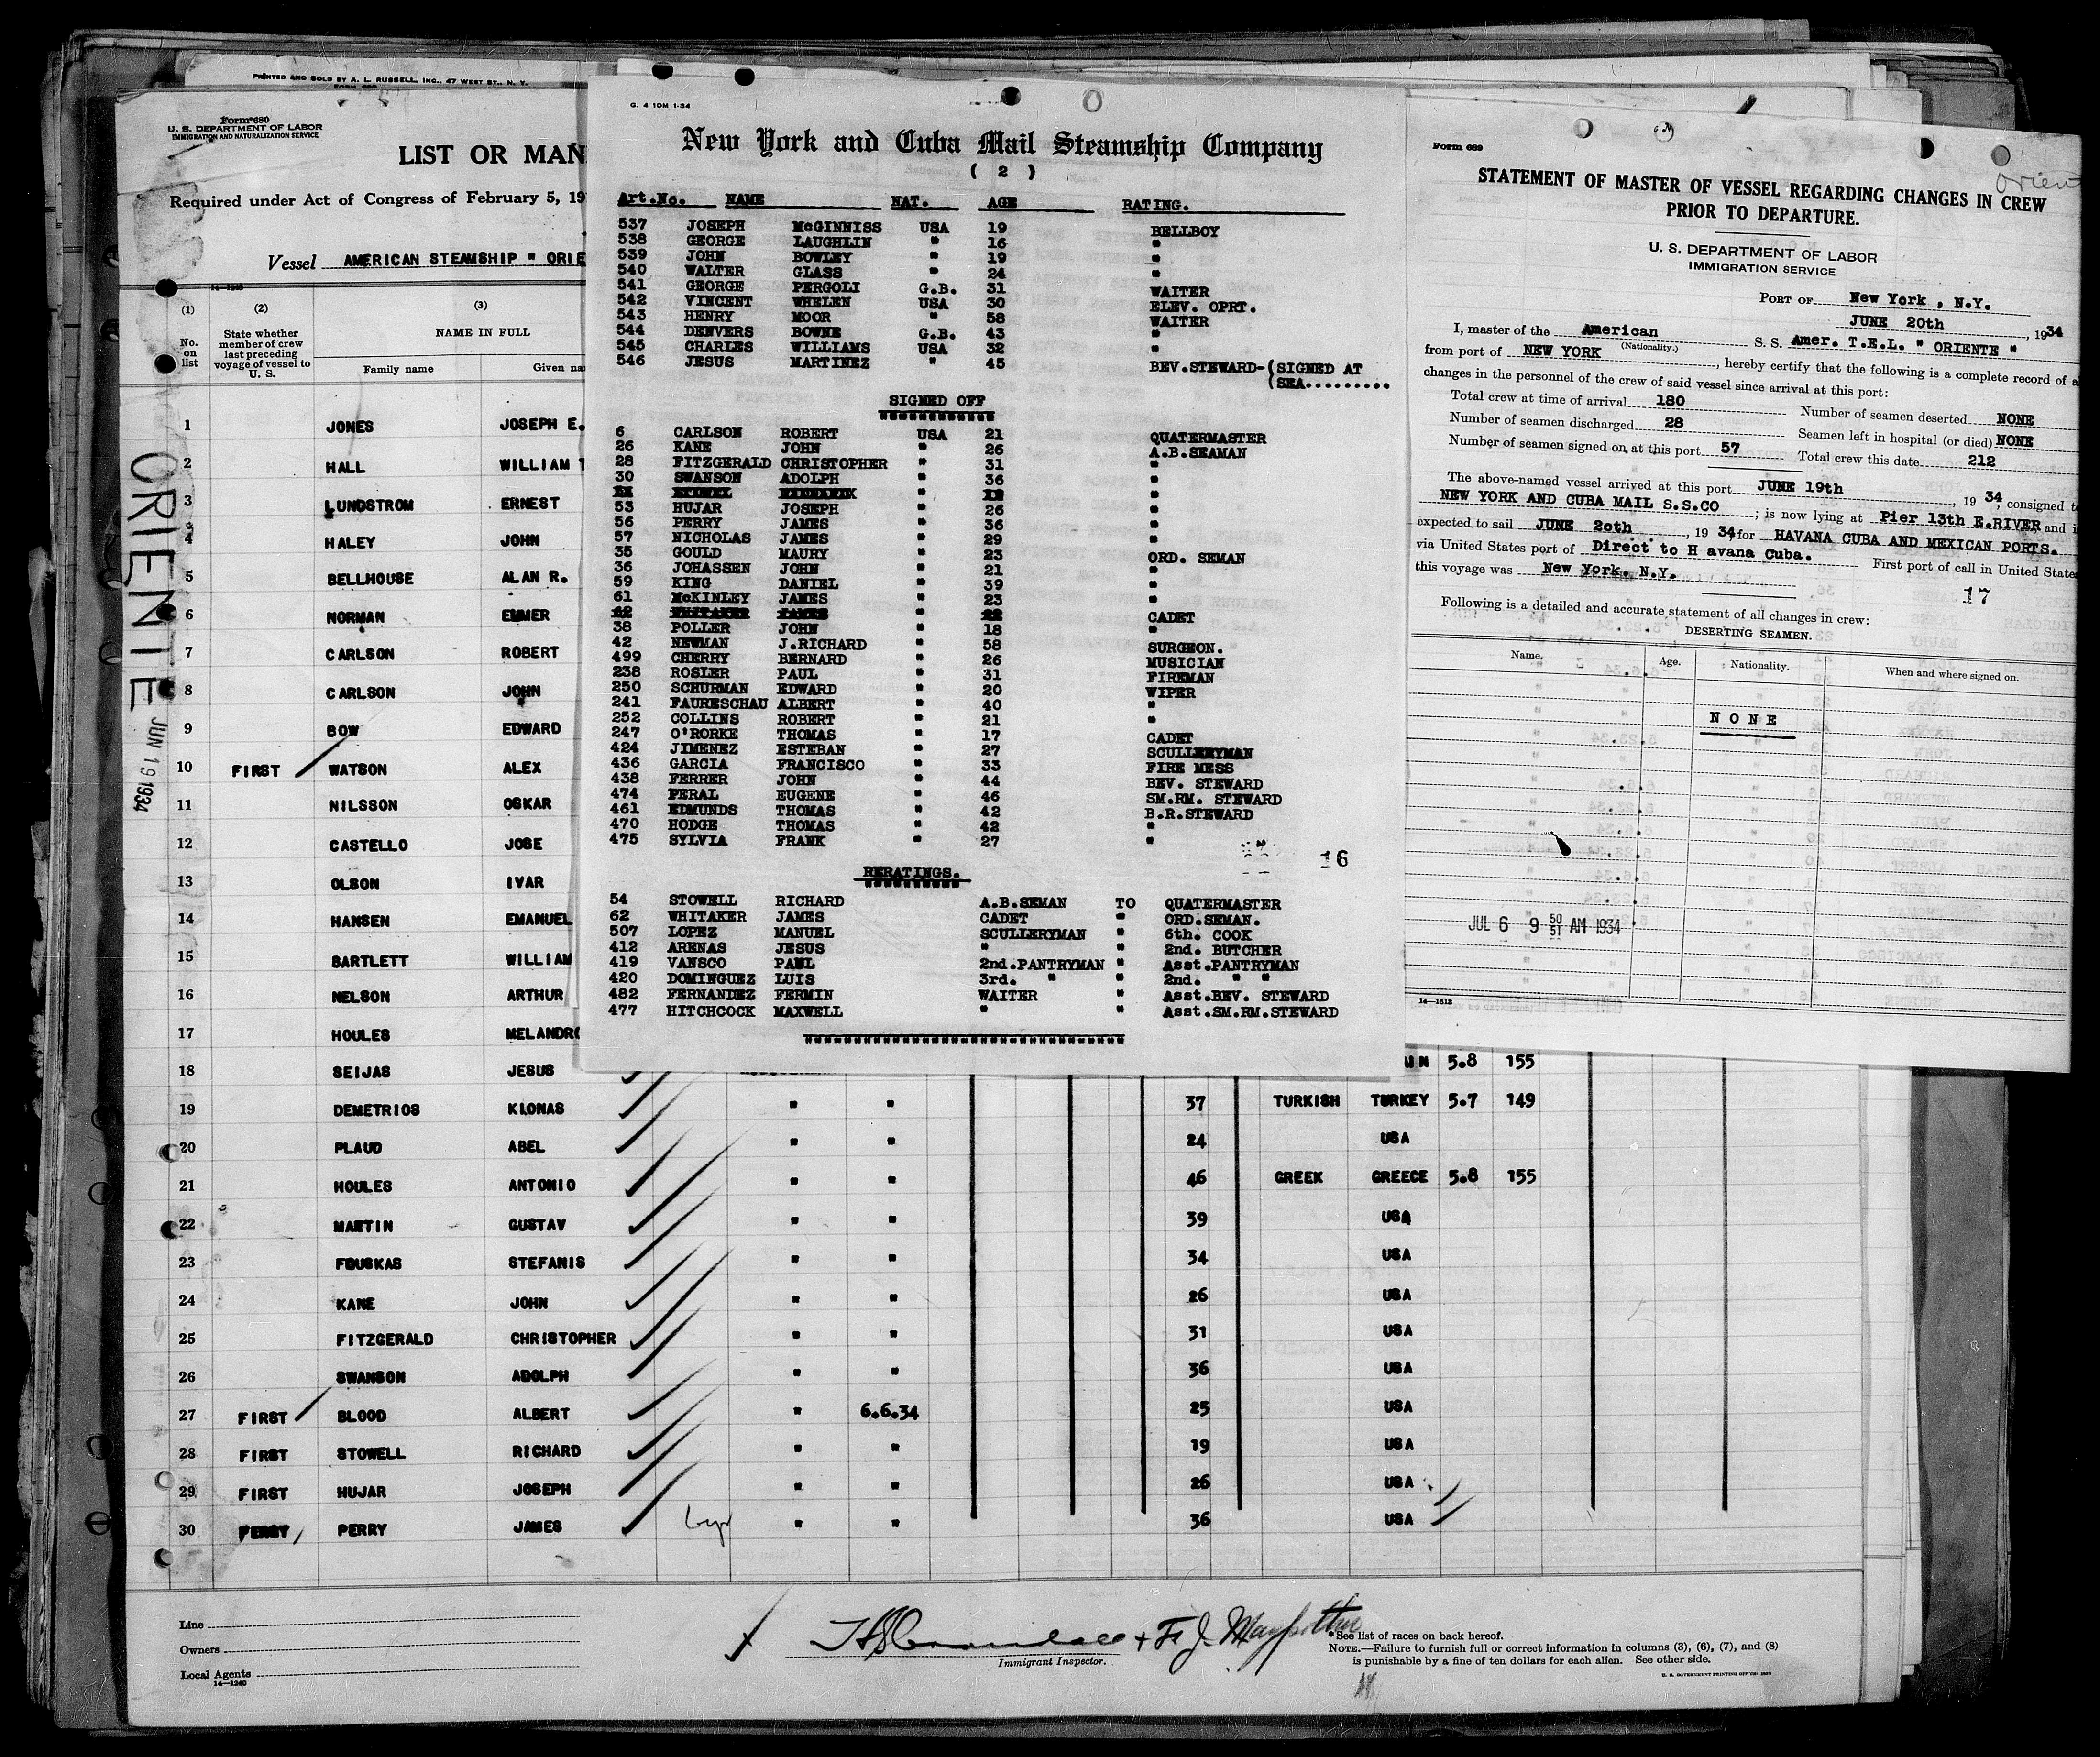 PRINTED AND SOLD BY A. L. RUSSELL, INC., 47 WEST ST., N. Y.
Form 680
U. S. DEPARTMENT OF LABOR
IMMIGRATION AND NATURALIZATION SERVICE
LIST OR MAN
Required under Act of Congress of February 5, 19
Vessel AMERICAN STEAMSHIP " ORIE
14-1240
(1) (2) (3)
No. on list
State whether member of crew last preceding voyage of vessel to U. S.
NAME IN FULL
Family name Given na
ORIENTE
JUN 19 1934
1 JONES JOSEPH E.
2 HALL WILLIAM T
3 LUNDSTROM ERNEST
4 HALEY JOHN
5 BELLHOUSE ALAN R.
6 NORMAN EMMER
7 CARLSON ROBERT
8 CARLSON JOHN
9 BOW EDWARD
10 FIRST WATSON ALEX
11 NILSSON OSKAR
12 CASTELLO JOSE
13 OLSON IVAR
14 HANSEN EMANUEL
15 BARTLETT WILLIAM
16 NELSON ARTHUR
17 HOULES MELANDRO
18 SEIJAS JESUS 5.8 155
19 DEMETRIOS KLONAS " " 37 TURKISH TURKEY 5.7 149
20 PLAUD ABEL " " 24 USA
21 HOULES ANTONIO " " 46 GREEK GREECE 5.8 155
22 MARTIN GUSTAV " " 39 USA
23 FOUSKAS STEFANIS " " 34 USA
24 KANE JOHN " " 26 USA
25 FITZGERALD CHRISTOPHER " " 31 USA
26 SWANSON ADOLPH " " 36 USA
27 FIRST BLOOD ALBERT " 6.6.34 25 USA
28 FIRST STOWELL RICHARD " " 19 USA
29 FIRST HUJAR JOSEPH " " 26 USA
30 PERRY JAMES " " 36 USA
Line
Owners
Local Agents
14-1240
Immigrant Inspector.
*See list of races on back hereof.
NOTE.—Failure to furnish full or correct information in columns (3), (6), (7), and (8)
is punishable by a fine of ten dollars for each alien. See other side.
G. 4 10M 1-34
New York and Cuba Mail Steamship Company
( 2 )
Art.No. NAME NAT. AGE RATING.
537 JOSEPH McGINNISS USA 19 BELLBOY
538 GEORGE LAUGHLIN " 16 "
539 JOHN BOWLEY " 19 "
540 WALTER GLASS " 24 "
541 GEORGE PERGOLI G.B. 31 WAITER
542 VINCENT WHELEN USA 30 ELEV. OPRT.
543 HENRY MOOR " 58 WAITER
544 DENVERS BOWNE G.B. 43 "
545 CHARLES WILLIAMS USA 32 "
546 JESUS MARTINEZ " 45 BEV.STEWARD-(SIGNED AT
(SEA..........
SIGNED OFF
6 CARLSON ROBERT USA 21 QUATERMASTER
26 KANE JOHN " 26 A.B.SEAMAN
28 FITZGERALD CHRISTOPHER " 31 "
30 SWANSON ADOLPH " 36 "
53 HUJAR JOSEPH " 26 "
56 PERRY JAMES " 36 "
57 NICHOLAS JAMES " 29 "
35 GOULD MAURY " 23 ORD. SEMAN
36 JOHASSEN JOHN " 21 "
59 KING DANIEL " 39 "
61 McKINLEY JAMES " 23 "
62 WHITAKER JAMES " 22 CADET
38 POLLER JOHN " 18 "
42 NEWMAN J.RICHARD " 58 SURGEON.
499 CHERRY BERNARD " 26 MUSICIAN
238 ROSLER PAUL " 31 FIREMAN
250 SCHURMAN EDWARD " 20 WIPER
241 FAURESCHAU ALBERT " 40 "
252 COLLINS ROBERT " 21 "
247 O'RORKE THOMAS " 17 CADET
424 JIMENEZ ESTEBAN " 27 SCULLERYMAN
436 GARCIA FRANCISCO " 33 FIRE MESS
438 FERRER JOHN " 44 BEV. STEWARD
474 PERAL EUGENE " 46 SM.RM. STEWARD
461 EDMUNDS THOMAS " 42 B.R.STEWARD
470 HODGE THOMAS " 42 "
475 SYLVIA FRANK " 27 "
16
RERATINGS.
54 STOWELL RICHARD A.B.SEMAN TO QUATERMASTER
62 WHITAKER JAMES CADET " ORD.SEMAN.
507 LOPEZ MANUEL SCULLERYMAN " 6th. COOK
412 ARENAS JESUS " " 2nd. BUTCHER
419 VANSCO PAUL 2nd.PANTRYMAN " Asst.PANTRYMAN
420 DOMINGUEZ LUIS 3rd. " " 2nd. " "
482 FERNANDEZ FERMIN WAITER " Asst.BEV. STEWARD
477 HITCHCOCK MAXWELL " " Asst.SM.RM.STEWARD
Form 689
Orient
STATEMENT OF MASTER OF VESSEL REGARDING CHANGES IN CREW
PRIOR TO DEPARTURE.
U. S. DEPARTMENT OF LABOR
IMMIGRATION SERVICE
PORT OF New York , N.Y.
JUNE 20th , 1934
I, master of the American S. S. Amer. T.E.L. " ORIENTE "
(Nationality.)
from port of NEW YORK , hereby certify that the following is a complete record of a
changes in the personnel of the crew of said vessel since arrival at this port:
Total crew at time of arrival 180 Number of seamen deserted NONE
Number of seamen discharged 28 Seamen left in hospital (or died) NONE
Number of seamen signed on at this port 57 Total crew this date 212
The above-named vessel arrived at this port JUNE 19th , 19 34, consigned t
NEW YORK AND CUBA MAIL S.S.CO ; is now lying at Pier 13th E.RIVER and i
expected to sail JUNE 2oth , 19 34 for HAVANA CUBA AND MEXICAN PORTS.
via United States port of Direct to H avana Cuba. First port of call in United State
this voyage was New York. N.Y.
17
Following is a detailed and accurate statement of all changes in crew:
DESERTING SEAMEN.
Name. Age. Nationality. When and where signed on.
NONE
JUL 6 9 50 51 AM 1934
14-1613